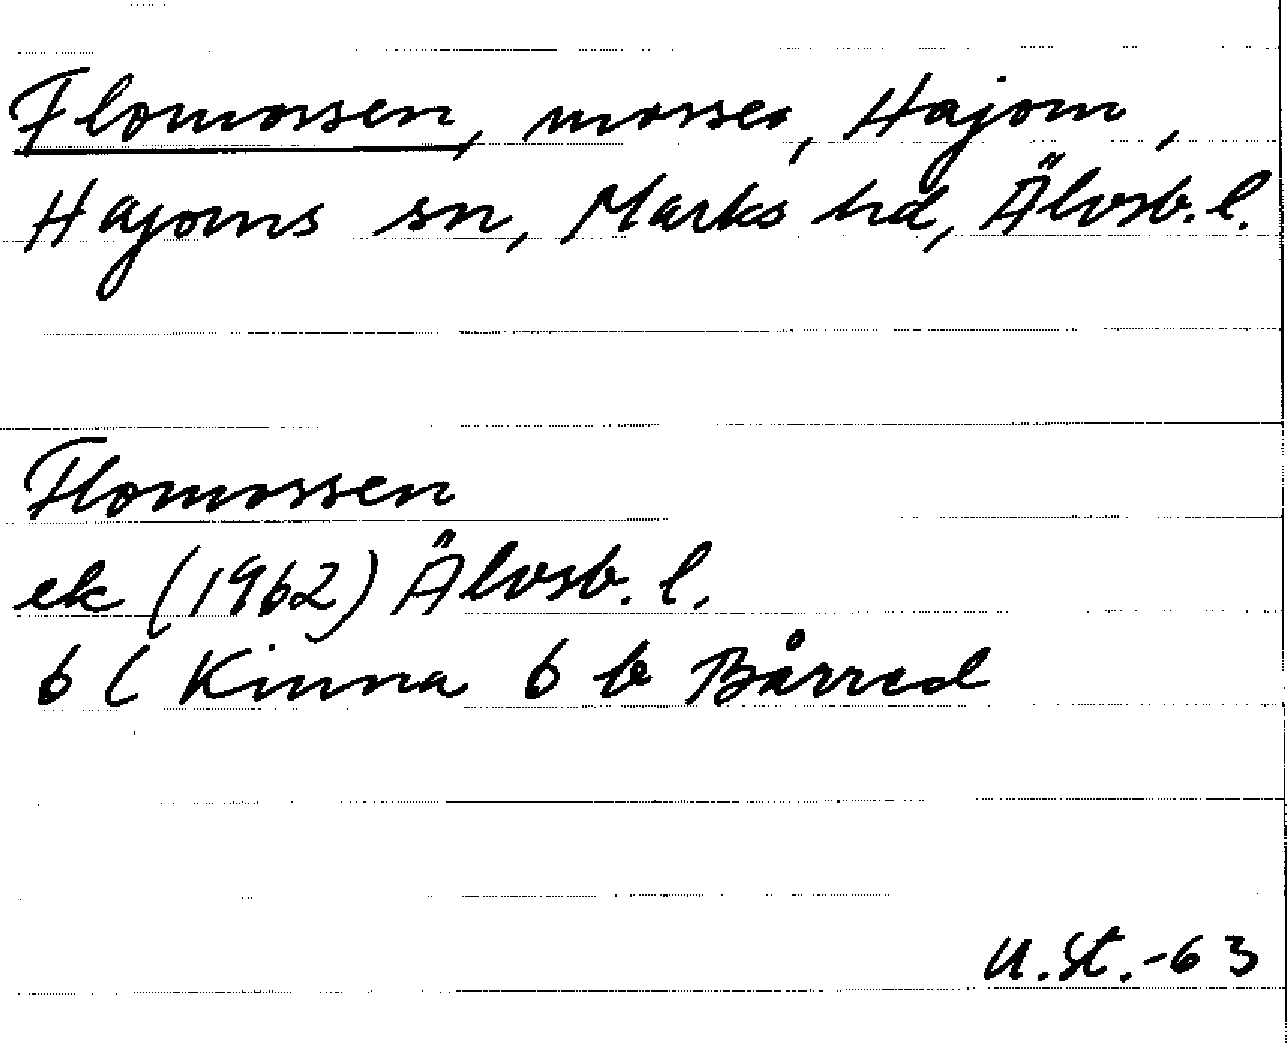 Flomossen, mosse, Hajom,
Hajoms sn, Marks hd, Älvsb. l.
Flomossen
ek (1962) Älvsb. l.
6 C Kinna 6 b Bårred
U.St.-63